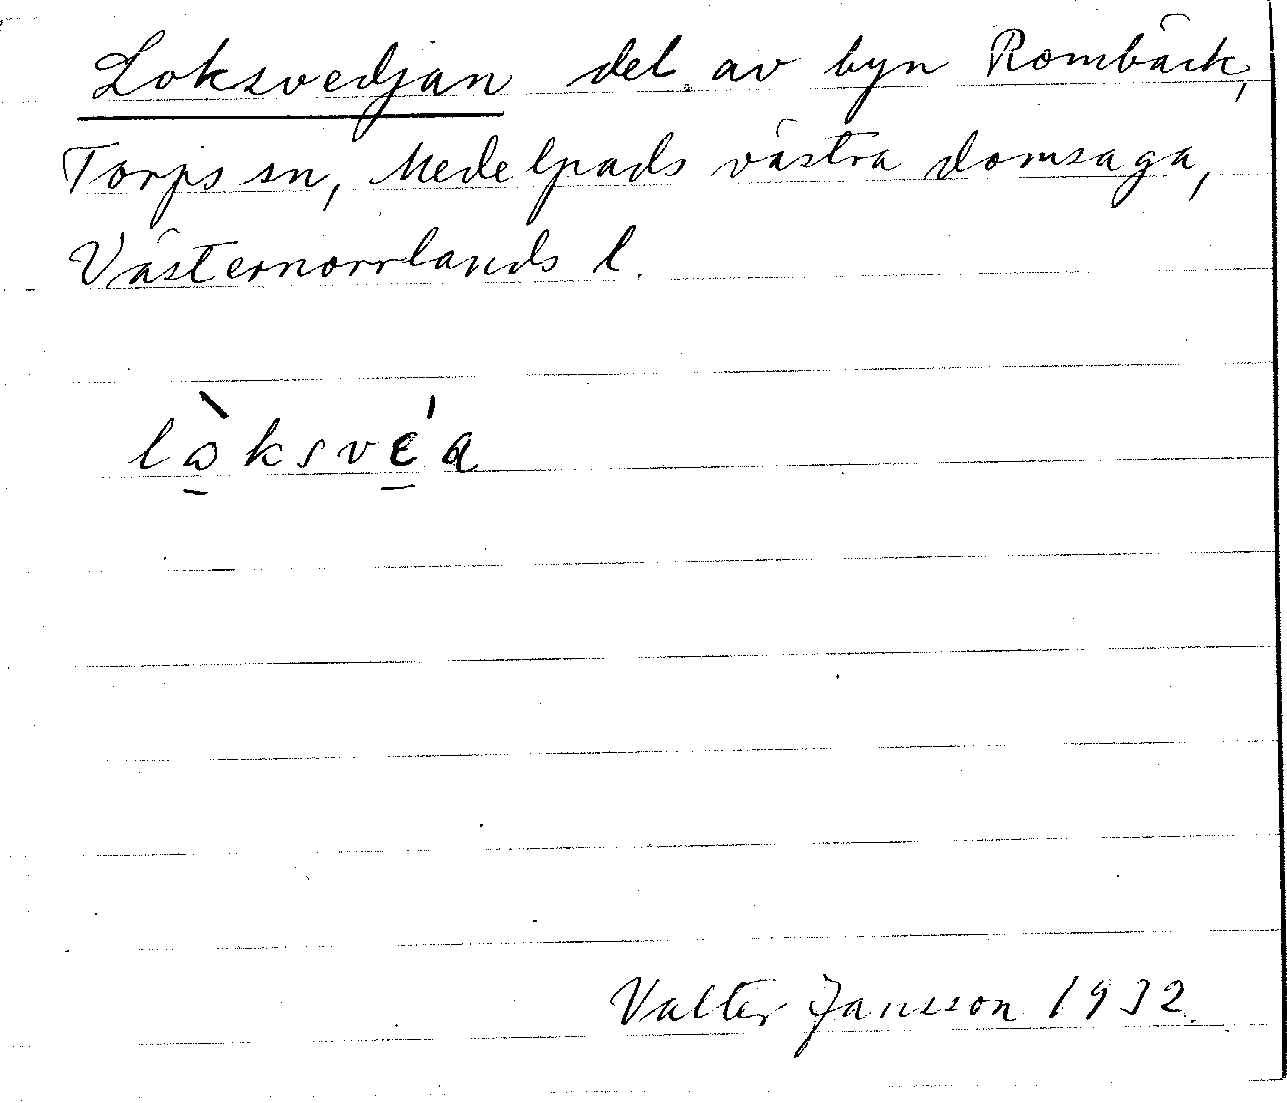 Loksvedjan del av byn Rombäck,
Torps sn, Medelpads västra domsaga,
Västernorrlands l.
lò̱ksvé̱a
Valter Jansson 1932.